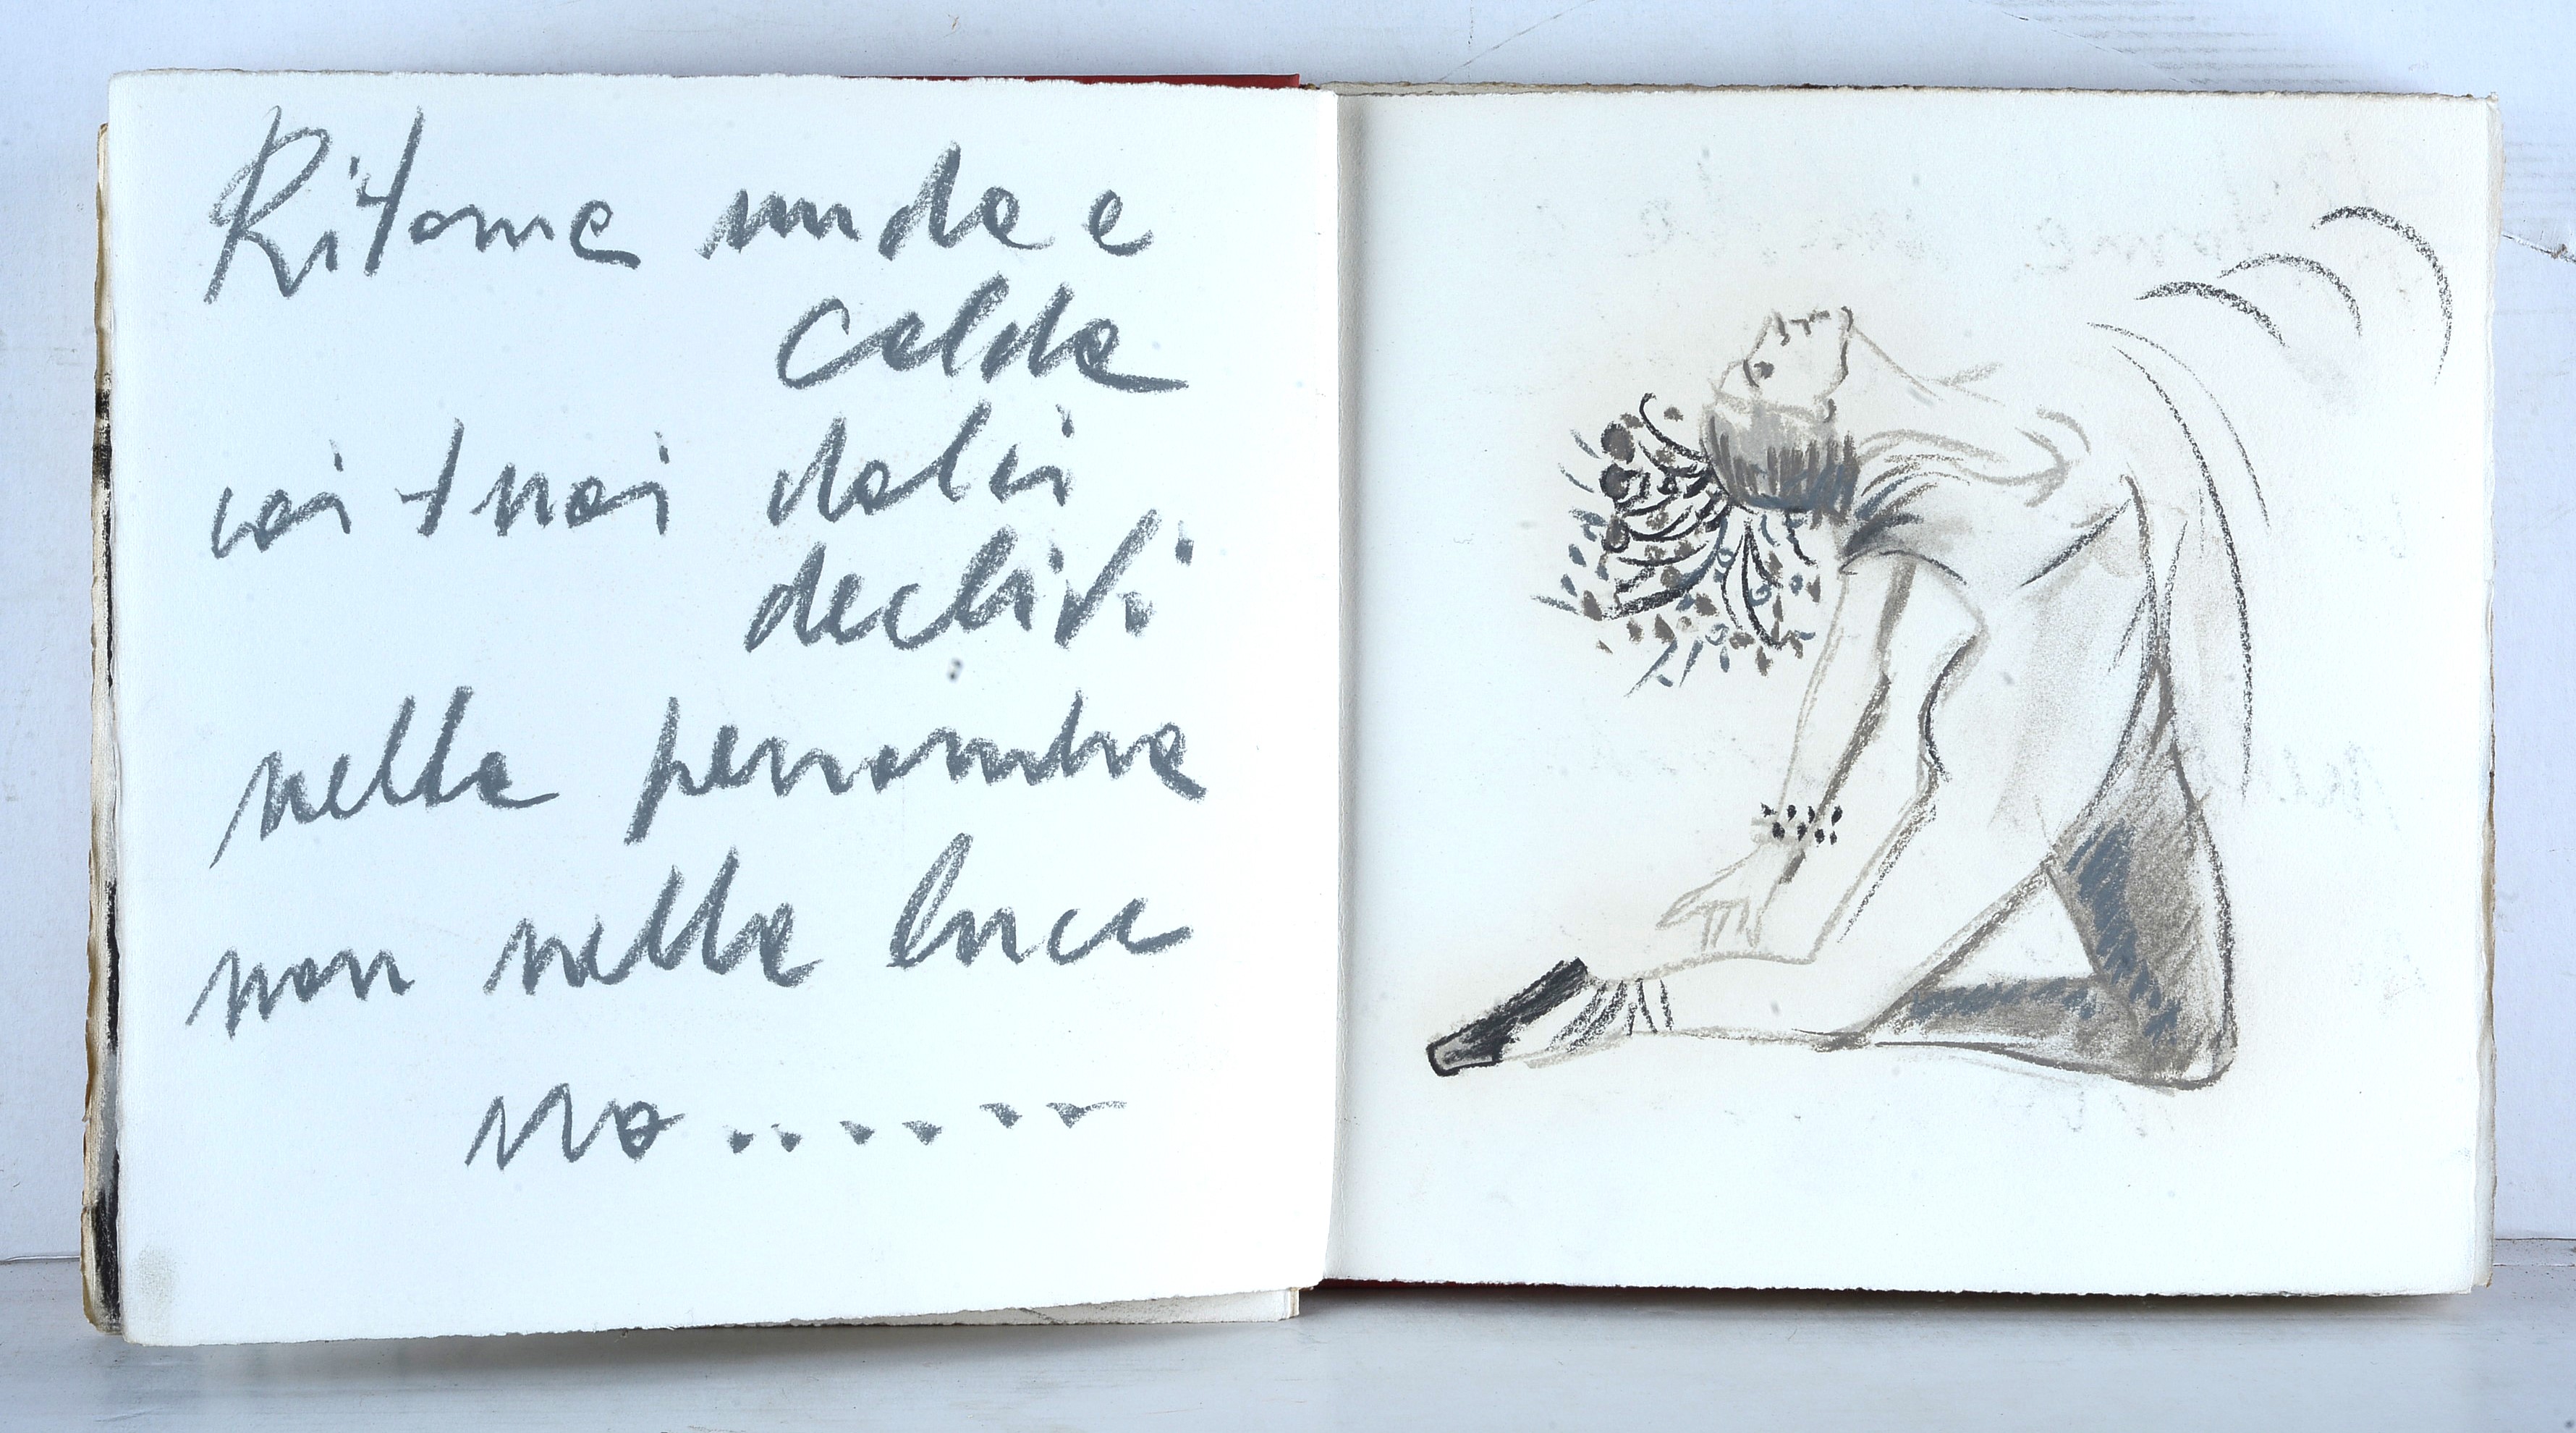 Ritorna nuda e
calda
coi tuoi dolci
declivi
nella penombra
non nella luce
no......